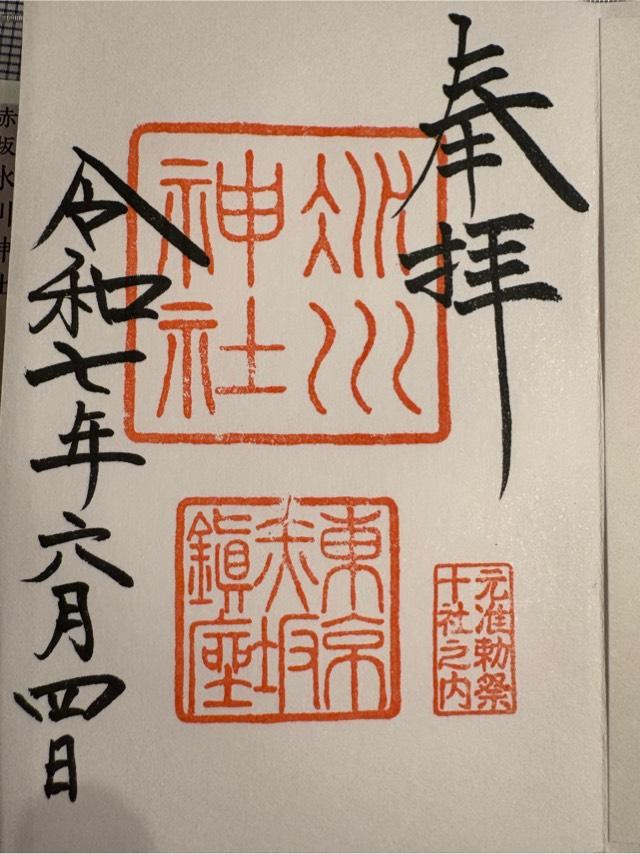 奉拝
氷川
神社
東京
赤坂
鎮座
元准勅祭
十社之内
令和七年六月四日
赤坂氷川神社